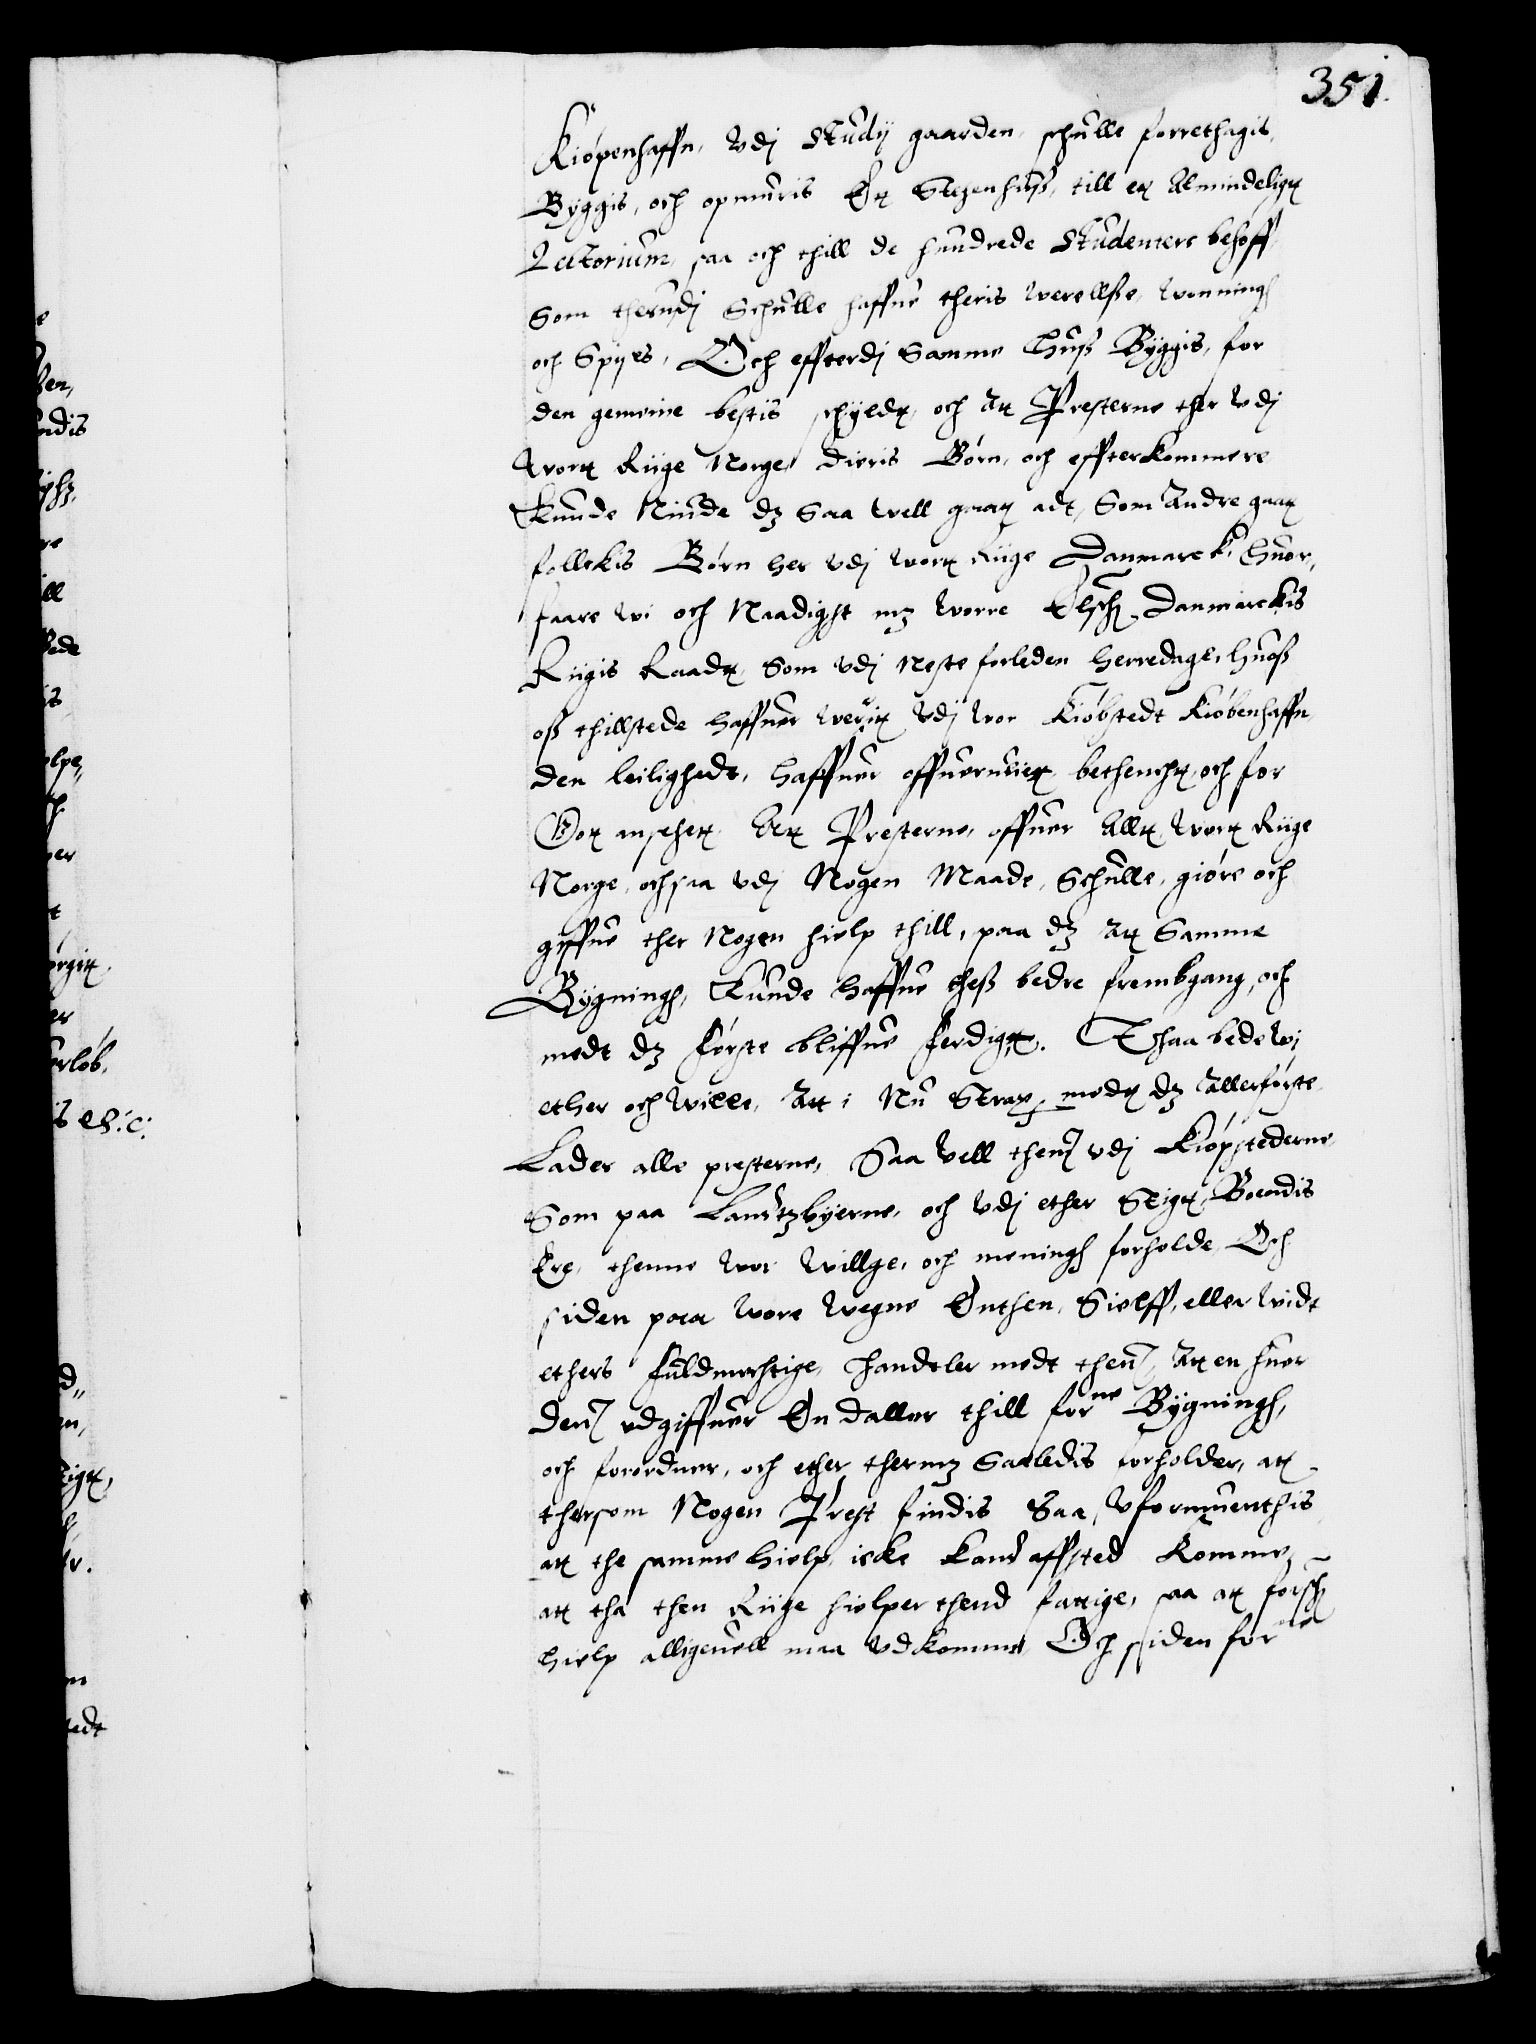 351.
Kiópenhaffn, Vdj Studij gaarden, schulle forrethagis,
Byggis, och opmuris Et Stezenhuß, till et Almindeligt
Lectorium, saa och thill de hundrede Studenters behoff
Som therudj Schulle haffue theris werellße, wonningh
och Spijes, Och effterdj Samme Huß Byggis, for
den gemeine bestis schyldt, och At Presterne ther Vdj
wort Riige Norge, dieris Børn, och effterkommere
Kunde Niude dz Saa well gaat adt, Som Andre gaat
folckis Børn her vdj wort Riige Danmarck, Huor,,
faare wi och Naadigst mz worre Elsch. Danmarckis
Riigis Raadt, Som vdj Neste forleden Herredage, huoß
oß thillstede Haffuer werit Vdj wor Kióbstedt Kióbenhaffn
den leilighedt, Haffuer offueruiet, bethencht, och for
Got ansehet At Presterne, offuer Alt wort Riige
Norge, ochsaa vdj Nogen Maade, Schulle, gióre och
giffue ther Nogen hielp thill, paa dz At Samme
Bygningh, Kunde Haffue theß bedre frembgang, och
medt dz første bliffue ferdigt. Thaa bede wi
ether och wille, At i Nu Strax medt dz Allerførste
Lader alle presterne, Saa vell them vdj Kiópstederne
Som paa Landtzbyerne, och vdj ether Stigt Boendis
Ere, thenne wor willge, och meningh forholde, Och
siden paa wore wegne Enthen, Sielff, eller widt
ethers fuldmechtige, Handtler medt them, At en huer
dem vdgiffuer En daller thill forne Bygningh,
och forordner, och ether thermz Saaledis forholder, at
thersom Nogen Prest findis Saa Vformuenthis
at the samme hielp icke kand affsted Komme
at tha then Riige hielper thend fattige, saa at forsch
hielp alligeuell maa Vdkomme, Och siden forne